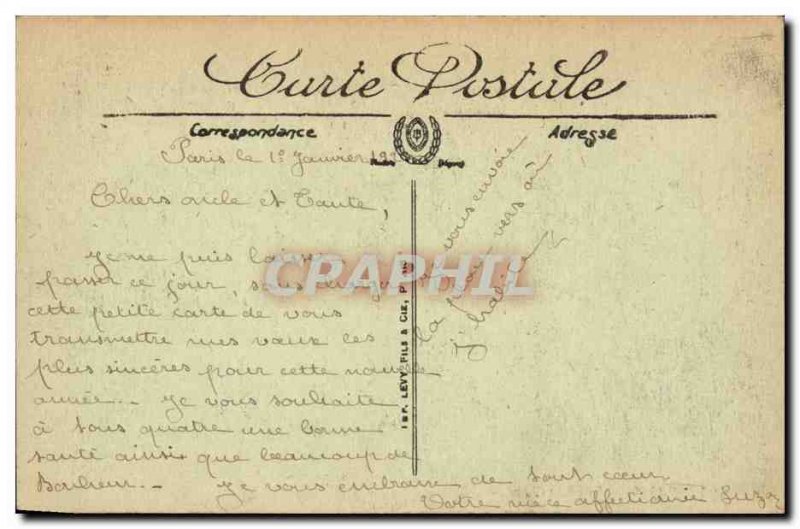 Carte Postale
Correspondance
Adresse
Paris le 1e Janvier 19
Chers oncle et Tante,
je me puis laisser
passer ce jour, sans
cette petite carte de vous
transmettre mes vœux les
plus sincères pour cette nouvelle
année.. je vous souhaite
à tous quatre une bonne
santé ainsi que beaucoup de
Bonheur.. je vous embrasse de tout cœur
Votre nièce affectionnée Suzy
vous envoie
la vers où
j'habite
CPAPHIL
IMP. LEVY FILS & CIE, P